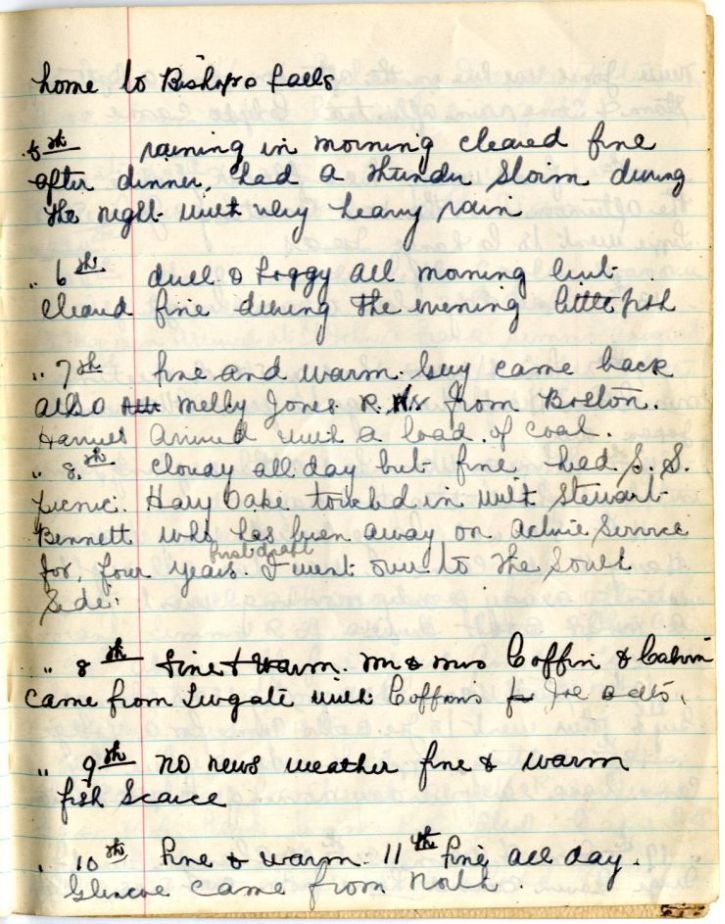 home to Bishops Falls
5th raining in morning cleared fine
after dinner, had a thunder Storm during
the night with very heavy rain
" 6th dull & foggy all morning but
cleared fine during the evening little fish
" 7th fine and warm. Guy came back
also Melby Jones R. from Boston.
Harries arrived with a load of coal.
" 8th cloudy all day but fine, had S. S.
picnic. Hary Oake touched in with Stewart
Bennett who has been away on Active Service
for, four years. first draft I went over to the South
Side.
" 8th Fine & Warm. Mr & Mrs Coffin & Calvin
came from Twgate with Coffins for Joe Batts.
" 9th no news weather fine & warm
fish Scarce
" 10th Fine & warm. 11th Fine all day.
Glencoe came from North.